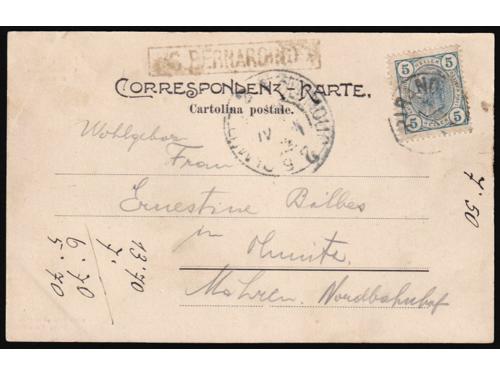 S. BERNARDINO
CORRESPONDENZ-KARTE.
Cartolina postale.
5 HELLER 5
5 5
PIRANO
Wohlgebor
Frau
Ernestine Balbes
in
Olmütz
Mähren. Nordbahnhof
7·50
13·70
7·
6·70
5·70